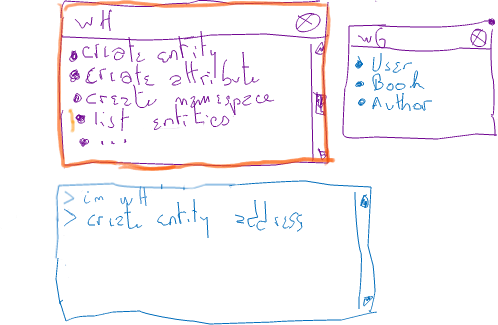 WH
• create entity
• create attribute
• create namespace
• list entities
• ...
WG
• User
• Book
• Author
> im WH
> create entity address